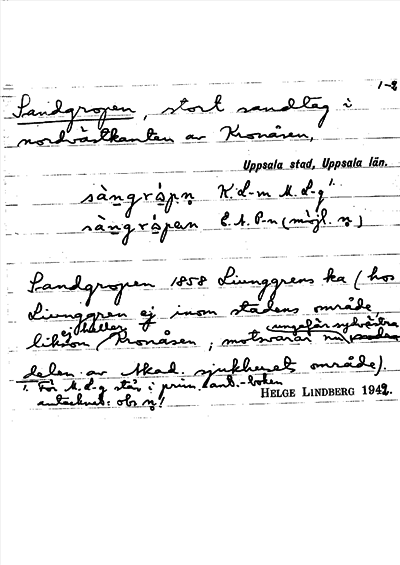 1-2
Sandgropen, stort sandtag i
nordvästkanten av Kronåsen,
Uppsala stad, Uppsala län.
sàngrópṇ K. L-m M. L-g¹·
sàngrópan E. A. P-n (möjl. ṇ)
Sandgropen 1858 Ljunggrens ka (hos
Ljunggren ej inom stadens område
liksom ej heller Kronåsen; motsvarar nu ungefär sydvästra
delen av Akad. sjukhusets område).
1. För M. L-g står i prim. ant.-boken
antecknat: obs ṇ!
HELGE LINDBERG 1942.